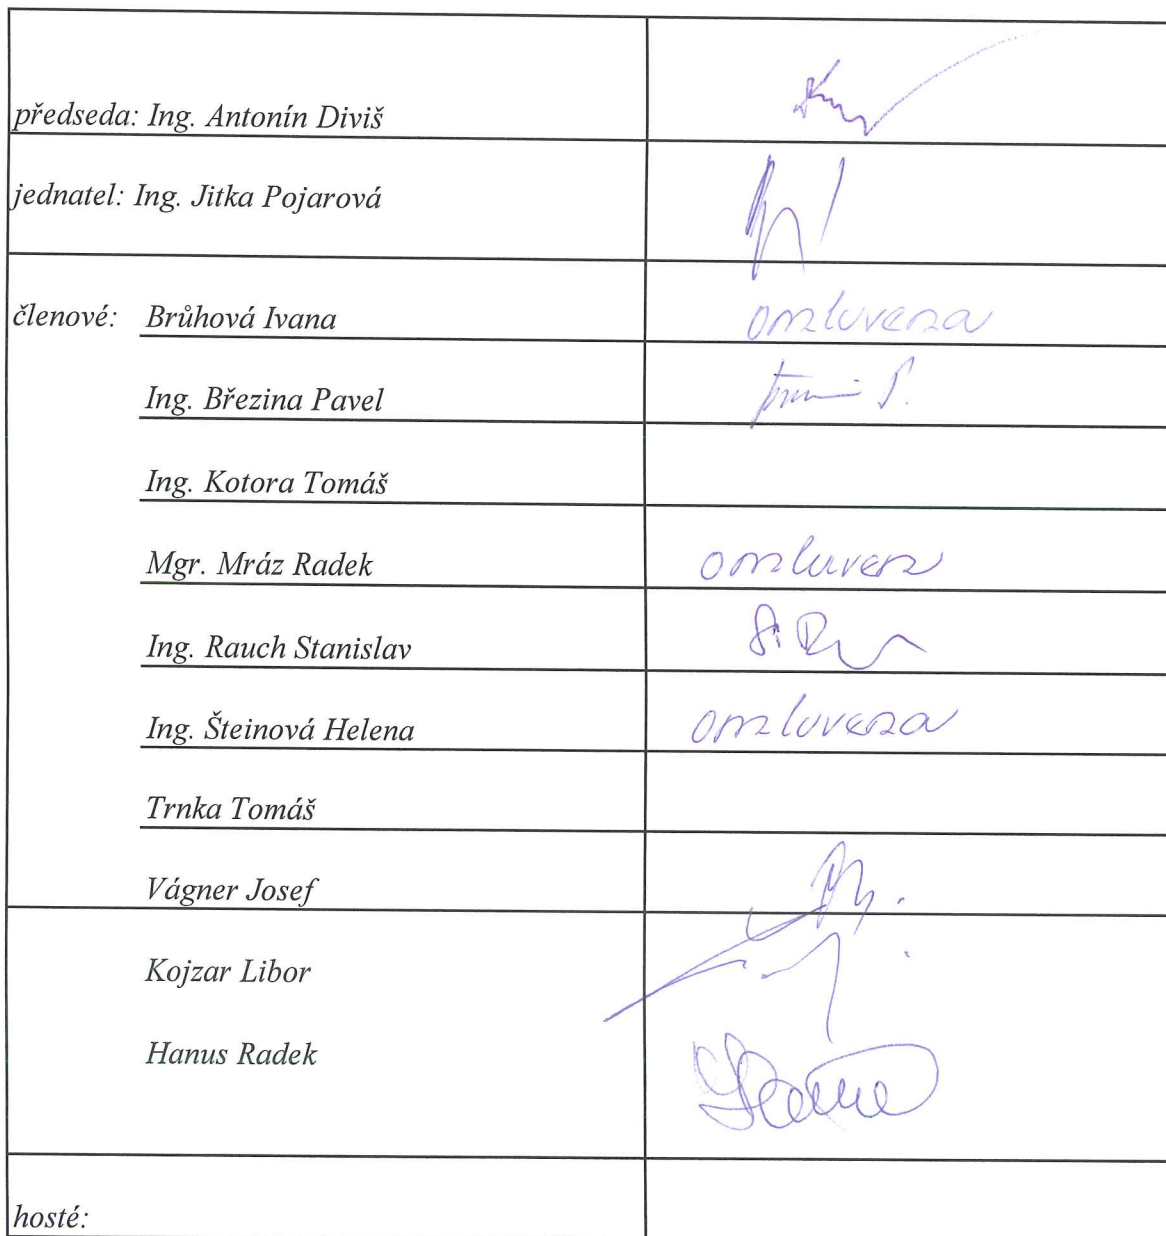 předseda: Ing. Antonín Diviš
jednatel: Ing. Jitka Pojarová
členové: Brůhová Ivana omluvena
Ing. Březina Pavel
Ing. Kotora Tomáš
Mgr. Mráz Radek omluven
Ing. Rauch Stanislav
Ing. Šteinová Helena omluvena
Trnka Tomáš
Vágner Josef
Kojzar Libor
Hanus Radek
hosté: